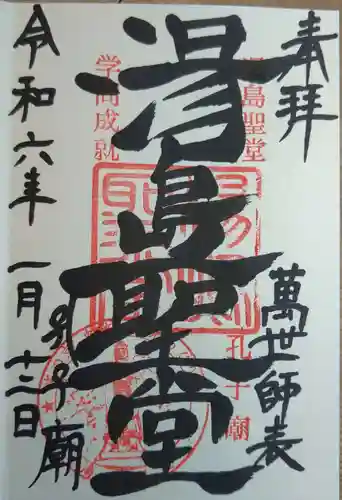 奉拝
萬世師表
湯島聖堂
湯島聖堂
孔子廟
学問成就
孔子廟
令和六年一月十二日